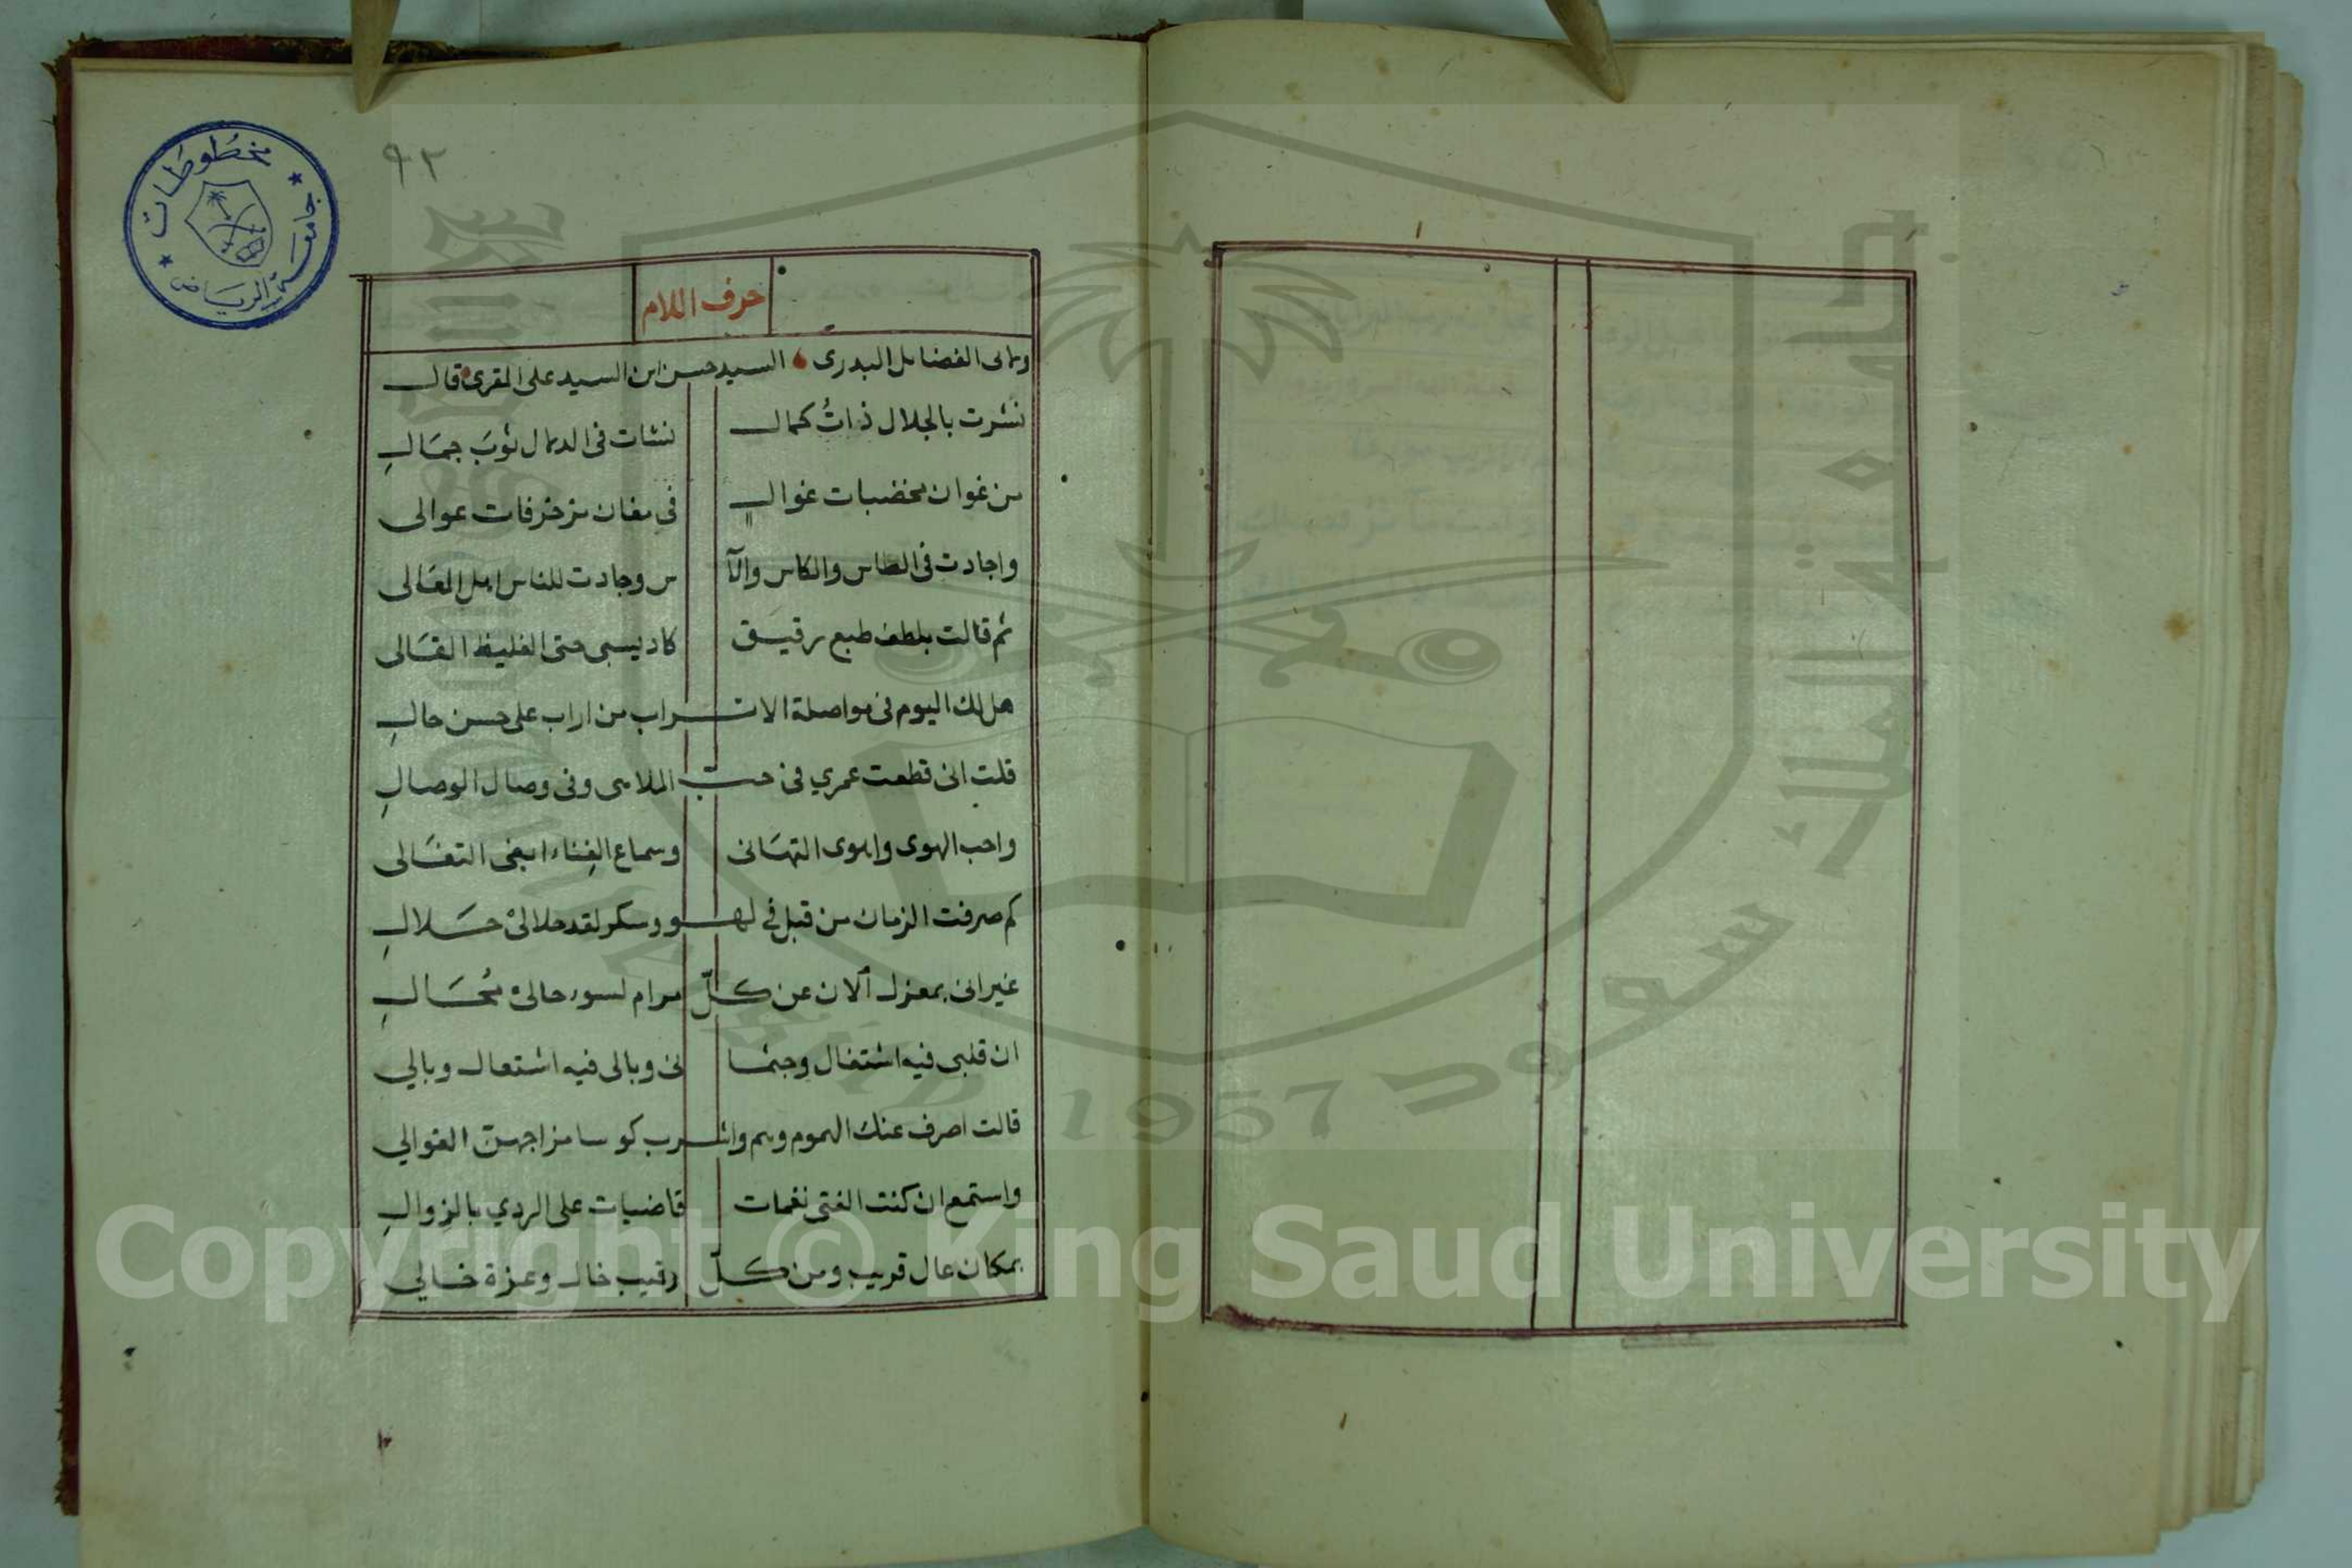 ٩٢
مخطوطات
جامعة الرياض
حرف اللام
الفضايل البدرى السيد حسن ابن السيد على المقرى قال
نشرت بالجلال ذاتُ كمال نشات فى الدلال ثوبَ جمالِ
من غوان مخضبات غوالٍ في مغان مزخرفات عوالى
واجادت فى الطاس والكاس والآ س وجادت للناس اهل المعَالى
ثم قالت بلطف طبع رقيق كاد يسبى حتى الغليظ القالى
هل لك اليوم فى مواصلة الاتراب من اراب على حسن حالِ
قلت انى قطعت عمري فى حب الملاهى وفى وصال الوصالِ
واحب الهوى واهوى التهَانى وسماع الغِناء ابغى التغَالى
كم صرفت الزمان من قبل في لهو وسكر لقد حلا لى حلالِ
غير انى بمعزل آلان عن كلّ مرام لسوء حالى مُحَالِ
ان قلبى فيه اشتغال وجثما نى وبالى فيه اشتعال وبالي
قالت اصرف عنك الهموم وهم واشرب كوسا مزاجهن الغوالي
واستمع ان كنت الفتى نغمات قاضيات على الردي بالزوالِ
بمكان عال قريب ومن كلّ رقيب خال وعزة خالي
جامعة الملك سعود
1957
Copyright © King Saud University